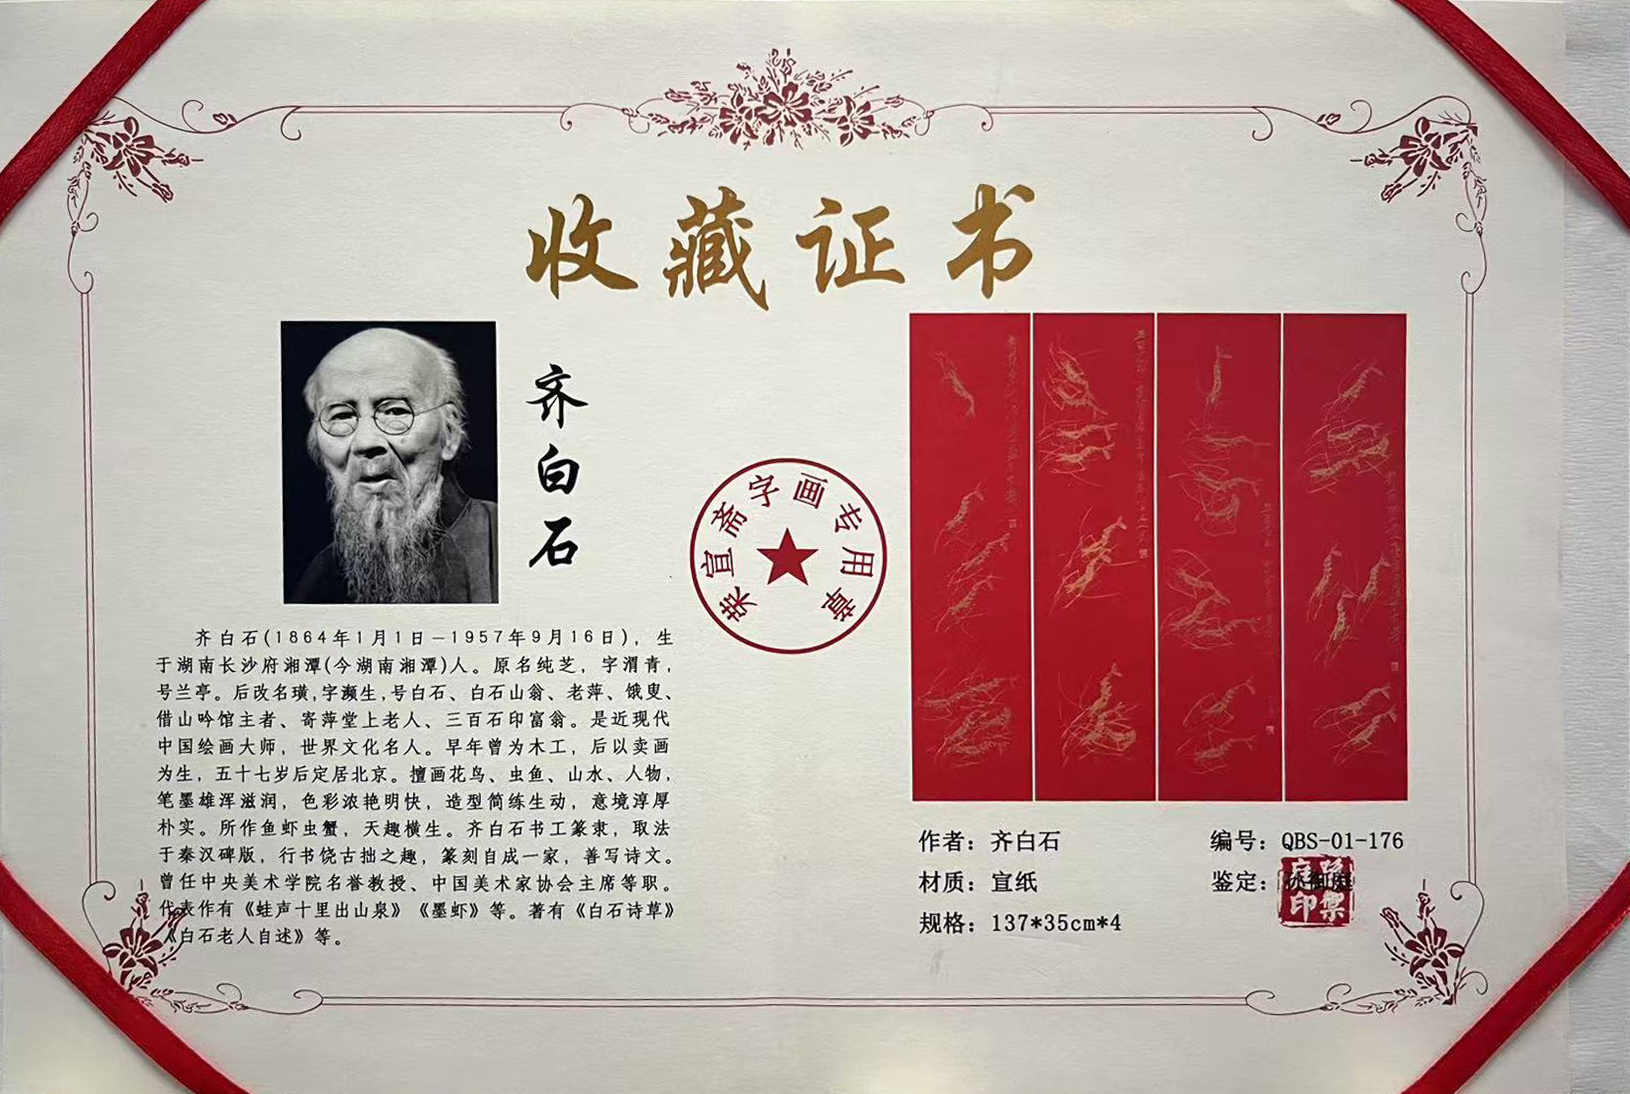 收藏证书
齐白石
荣宣斋字画专用章
齐白石(1864年1月1日—1957年9月16日)，生
于湖南长沙府湘潭(今湖南湘潭)人。原名纯芝，字渭青，
号兰亭。后改名璜,字濒生,号白石、白石山翁、老萍、饿叟、
借山吟馆主者、寄萍堂上老人、三百石印富翁。是近现代
中国绘画大师，世界文化名人。早年曾为木工，后以卖画
为生，五十七岁后定居北京。擅画花鸟、虫鱼、山水、人物，
笔墨雄浑滋润，色彩浓艳明快，造型简练生动，意境淳厚
朴实。所作鱼虾虫蟹，天趣横生。齐白石书工篆隶，取法
于秦汉碑版，行书饶古拙之趣，篆刻自成一家，善写诗文。
曾任中央美术学院名誉教授、中国美术家协会主席等职。
代表作有《蛙声十里出山泉》《墨虾》等。著有《白石诗草》
《白石老人自述》等。
作者：齐白石
编号：QBS-01-176
材质：宣纸
鉴定：
规格：137*35cm*4